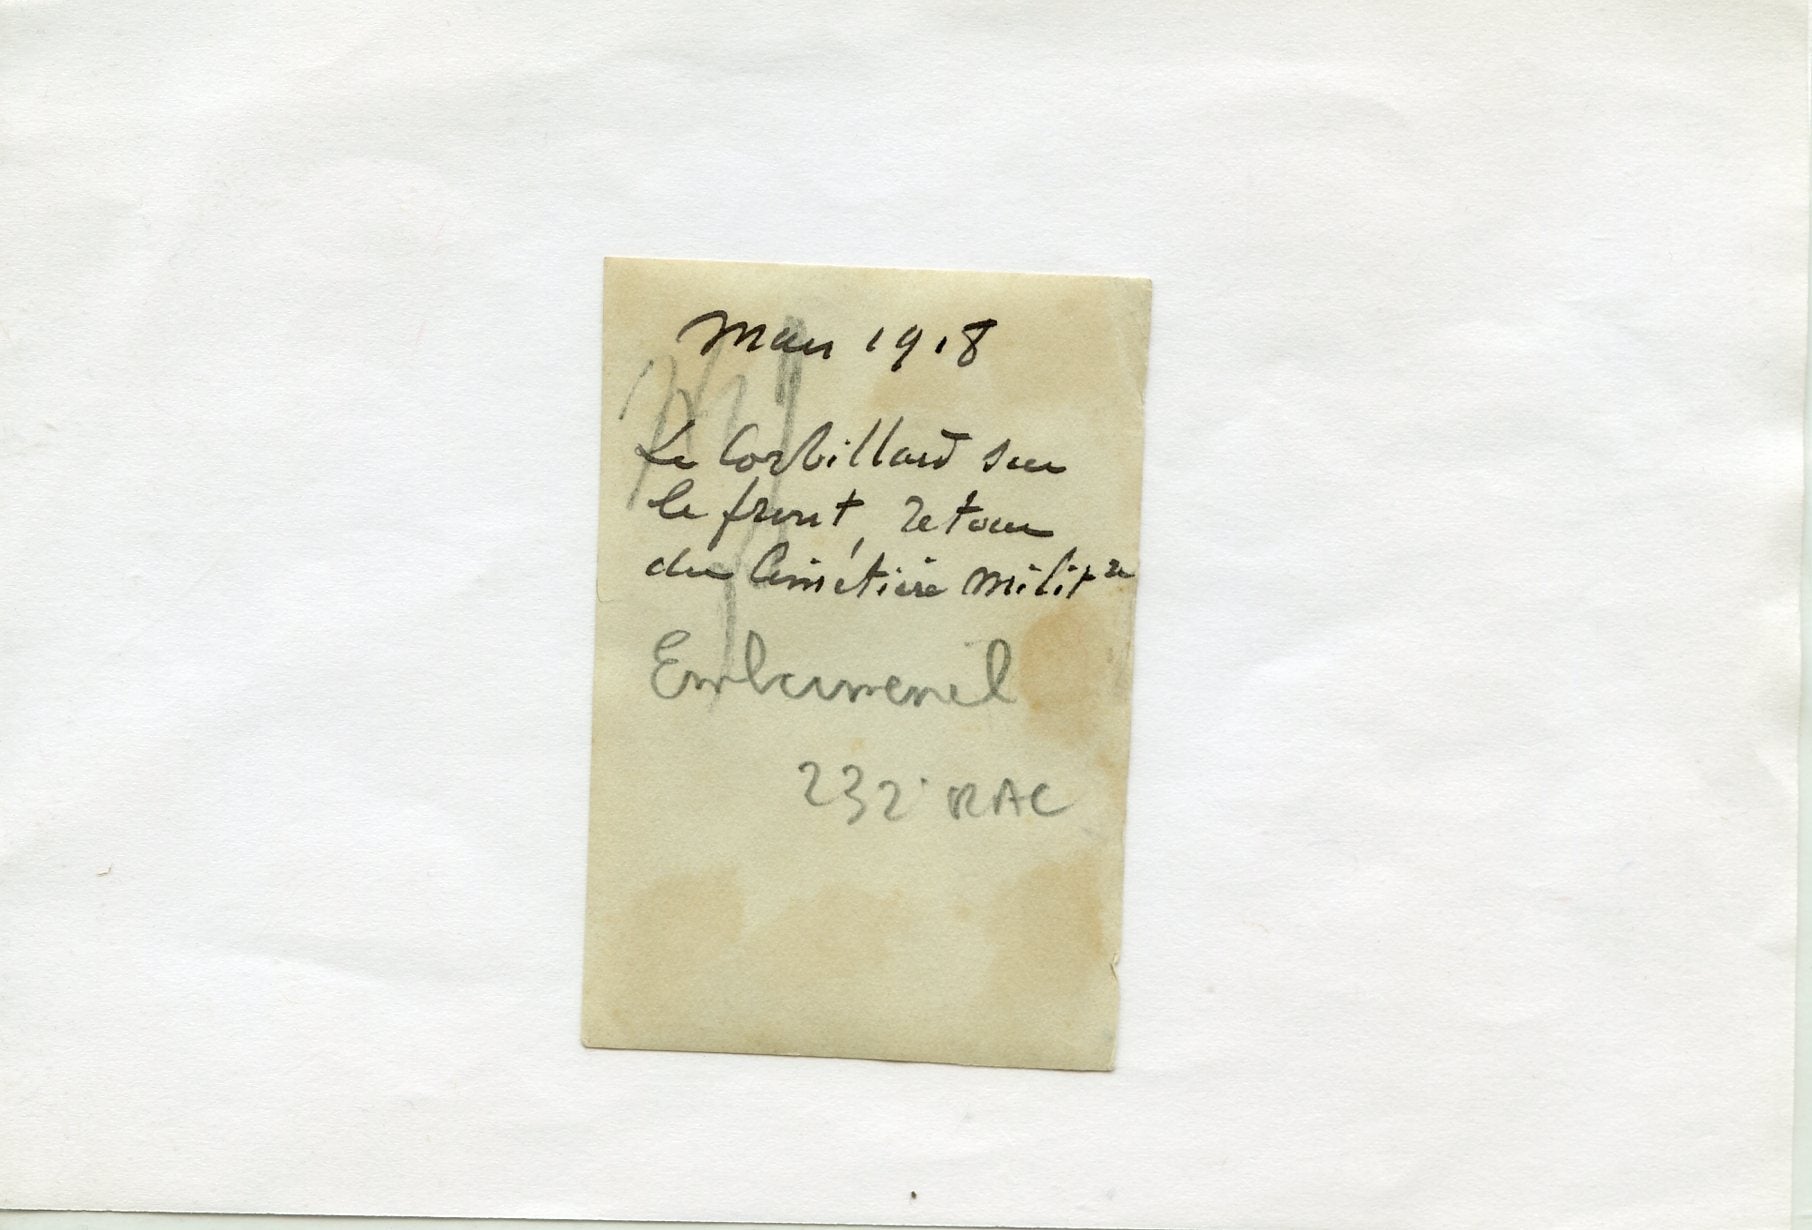 Mars 1918
Le Corbillard sur
le front, retour
du Cimétière milit re
Embermenil
232e RAC